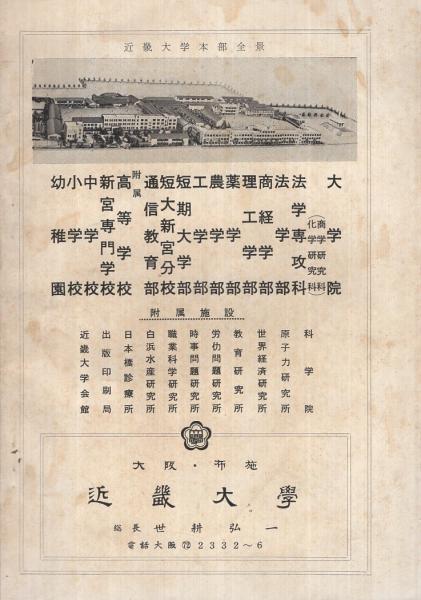 近畿大学本部全景
大学院
(商学研究科
化学研究科)
法学専攻科
法学部
商経学部
理工学部
薬学部
農学部
工学部
短期大学部
短大新宮分校
通信教育部
附属
高等学校
新宮専門学校
中学校
小学校
幼稚園
附属施設
科学院
原子力研究所
世界経済研究所
教育研究所
労仂問題研究所
時事問題研究所
職業科学研究所
白浜水産研究所
日本橋診療所
出版印刷局
近畿大学会館
大阪・布施
近畿大學
総長 世耕弘一
電話大阪72 2332〜6